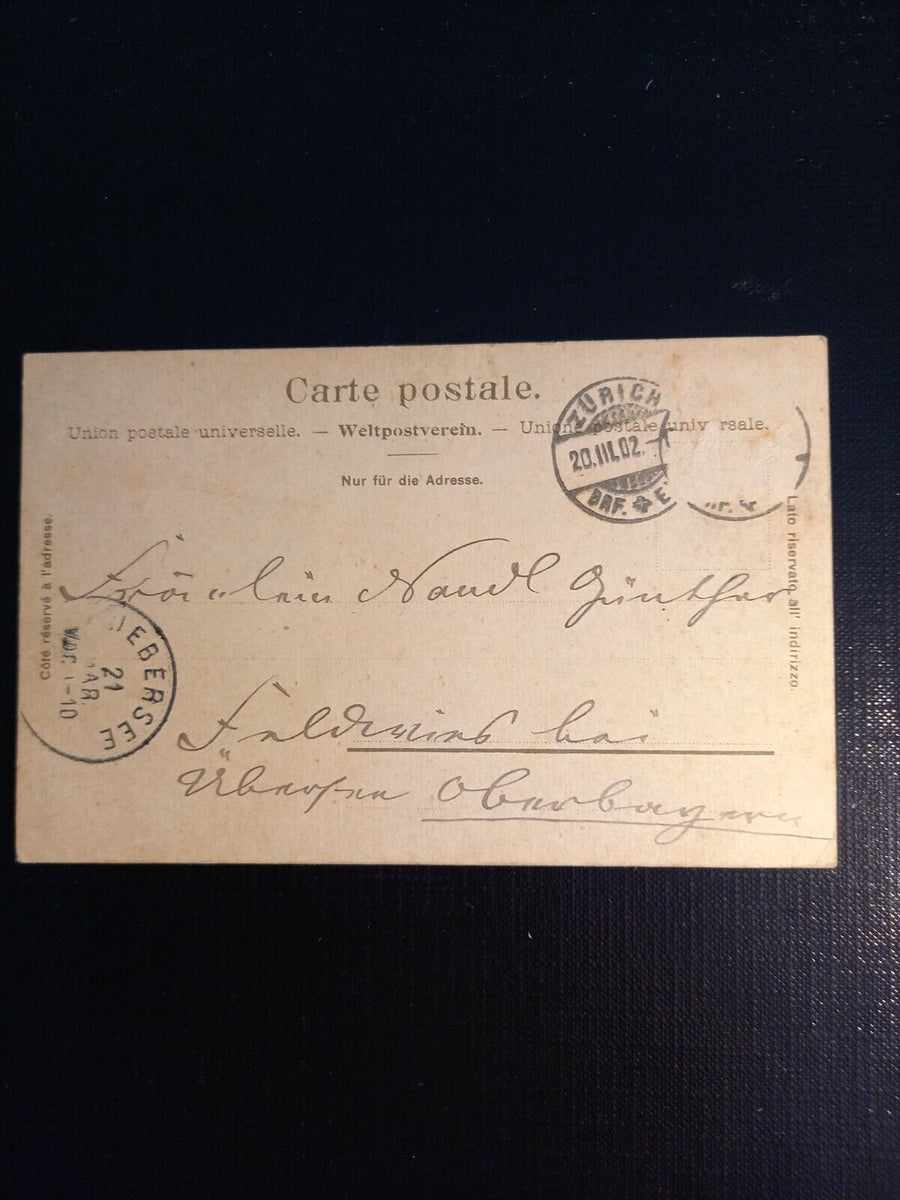 Carte postale.
Union postale universelle. — Weltpostverein. — Unione postale univ rsale.
Nur für die Adresse.
ZÜRICH
20.III.02.-
BRF. E
Côté réservé à l'adresse.
Lato riservato all' indirizzo.
Fräulein Nandl Günther
UEBERSEE
21
MAR.
-10
Feldwies bei
Übersee Oberbayern